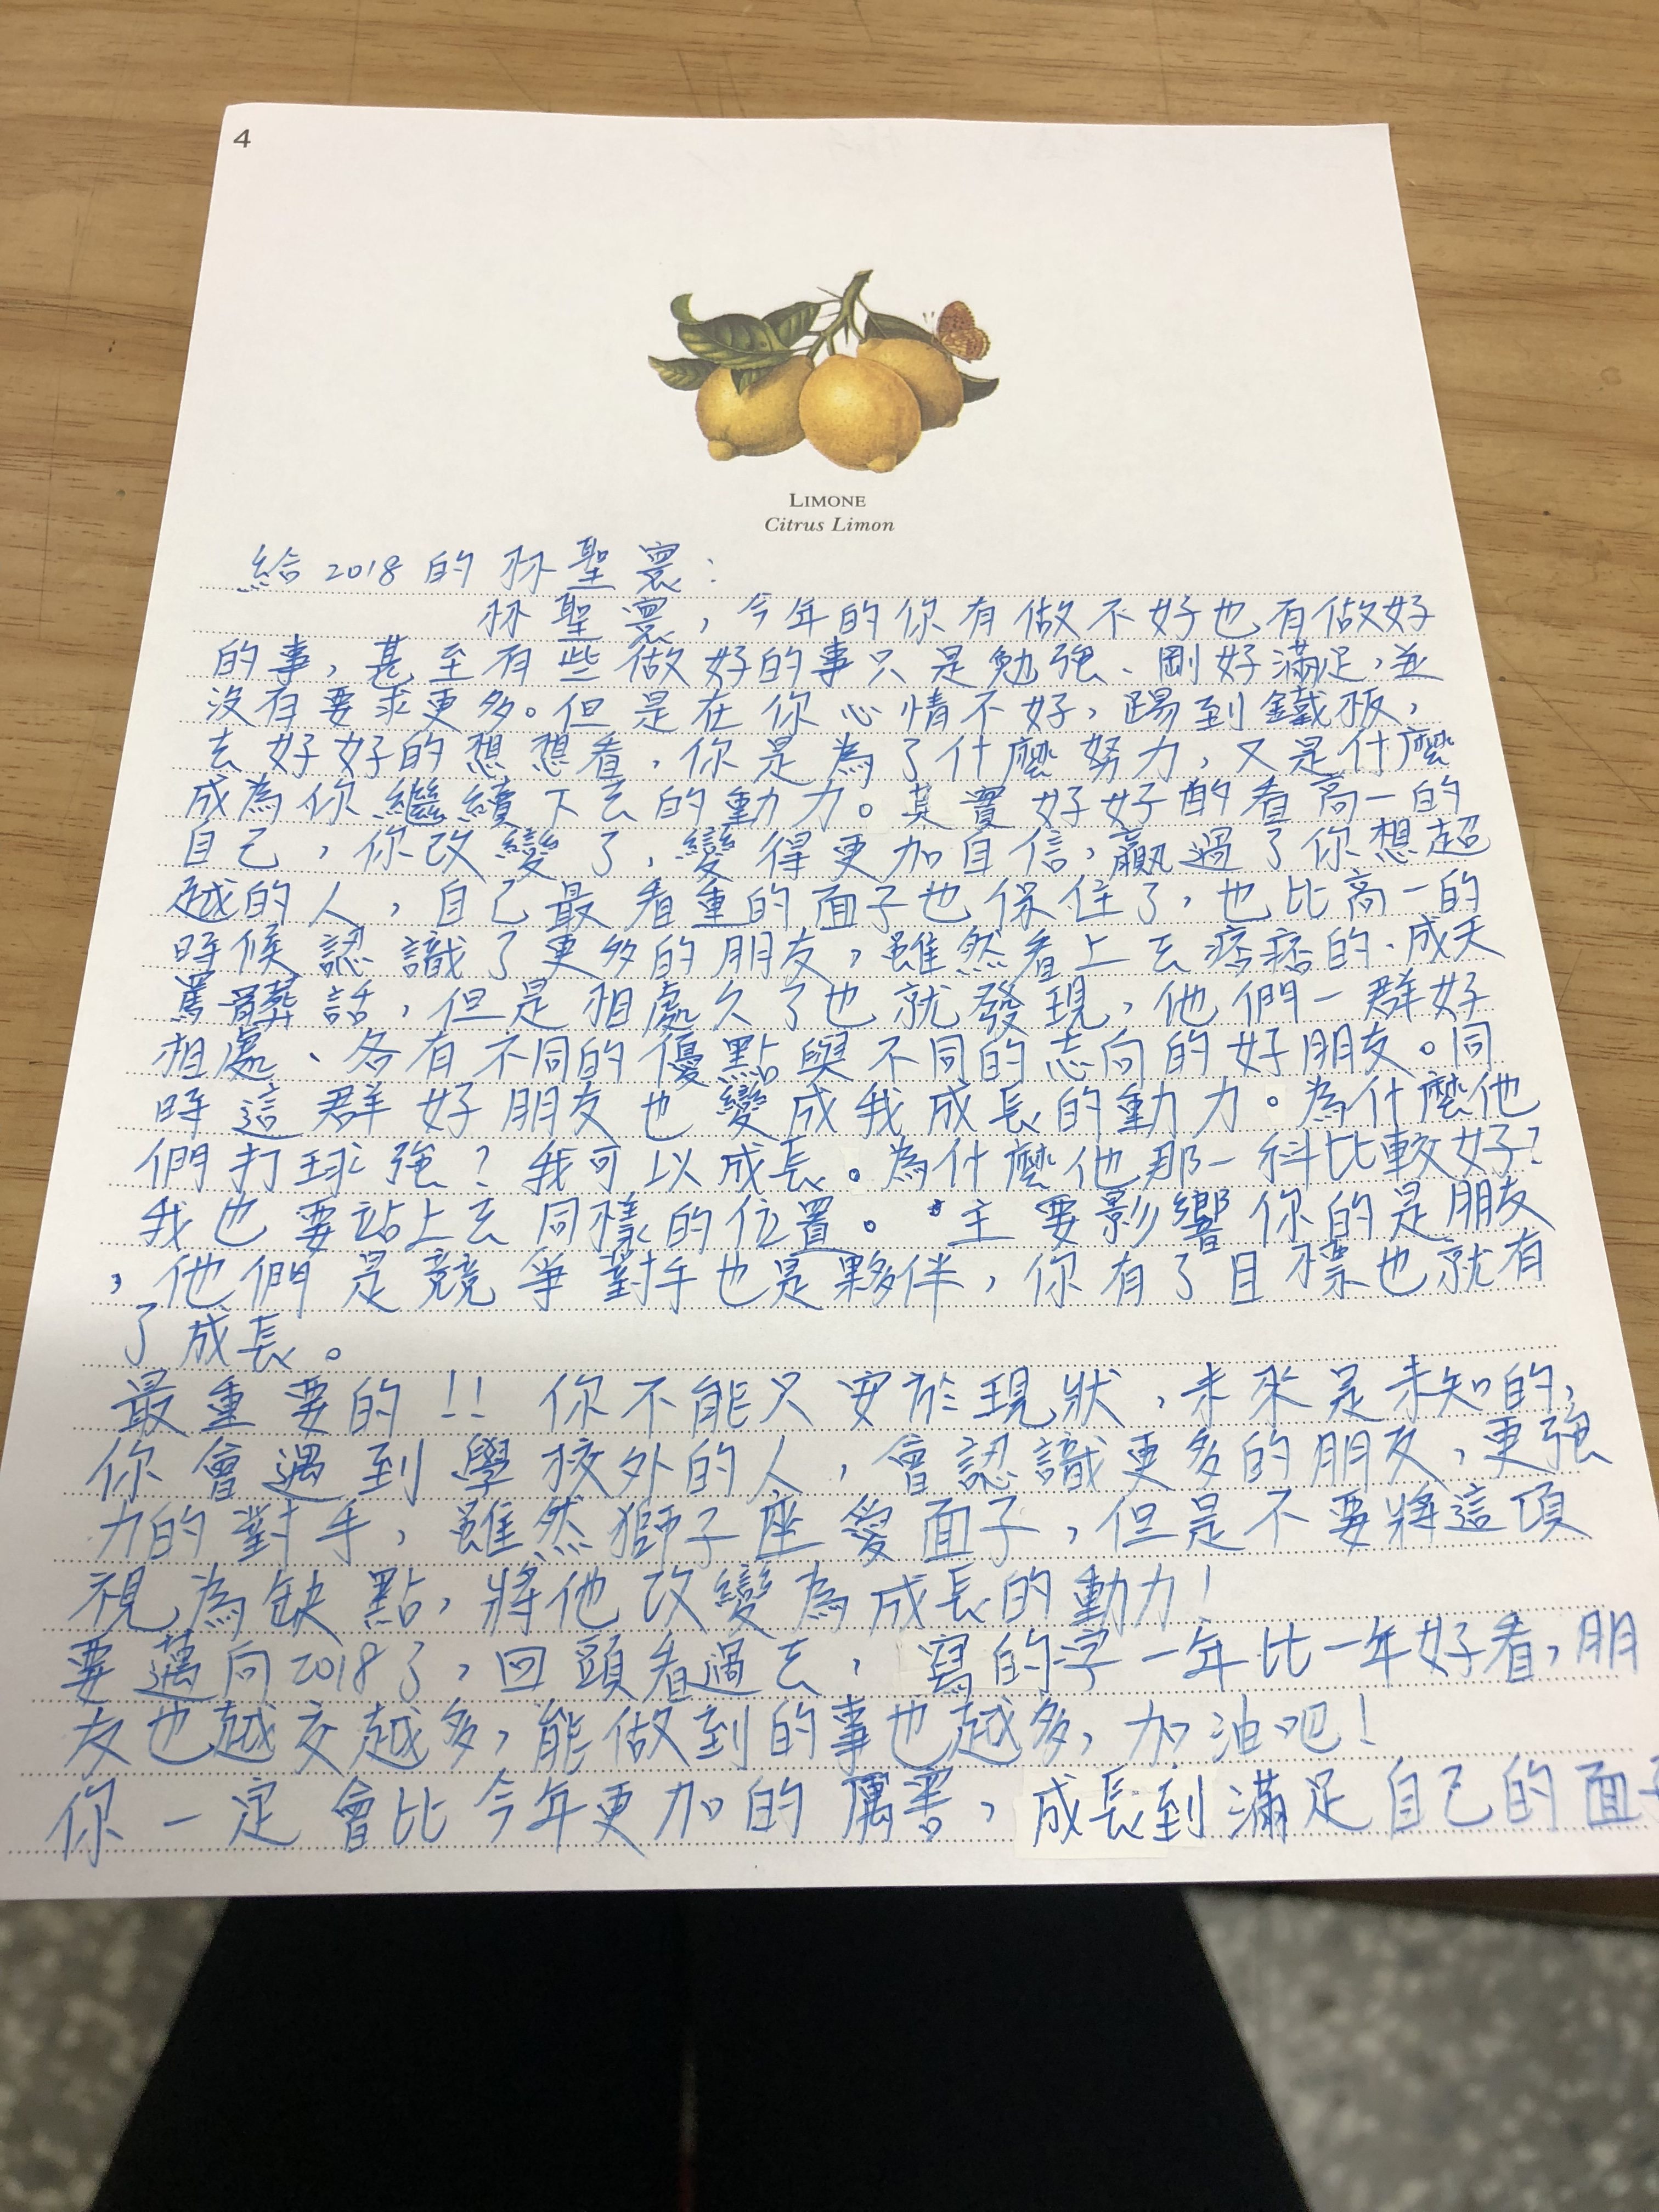 4
LIMONE
Citrus Limon
給2018的林聖寰：
林聖寰，今年的你有做不好也有做好
的事，甚至有些做好的事只是勉強、剛好滿足，並
沒有要求更多。但是在你心情不好，踢到鐵板，
去好好的想想看，你是為了什麼努力，又是什麼
成為你繼續下去的動力。其實好好的看高一的
自己，你改變了，變得更加自信，贏過了你想超
越的人，自己最看重的面子也保住了，也比高一的
時候認識了更多的朋友，雖然看上去痞痞的、成天
罵髒話，但是相處久了也就發現，他們一群好
相處、各有不同的優點與不同的志向的好朋友。同
時這群好朋友也變成我成長的動力。為什麼他
們打球強？我可以成長。為什麼他那一科比較好？
我也要站上去同樣的位置。主要影響你的是朋友
，他們是競爭對手也是夥伴，你有了目標也就有
了成長。
最重要的！！你不能只安於現狀，未來是未知的，
你會遇到學校外的人，會認識更多的朋友，更強
力的對手，雖然獅子座愛面子，但是不要將這項
視為缺點，將他改變為成長的動力！
要邁向2018了，回頭看過去，寫的字一年比一年好看，朋
友也越交越多，能做到的事也越多，加油吧！
你一定會比今年更加的厲害，成長到滿足自己的面子